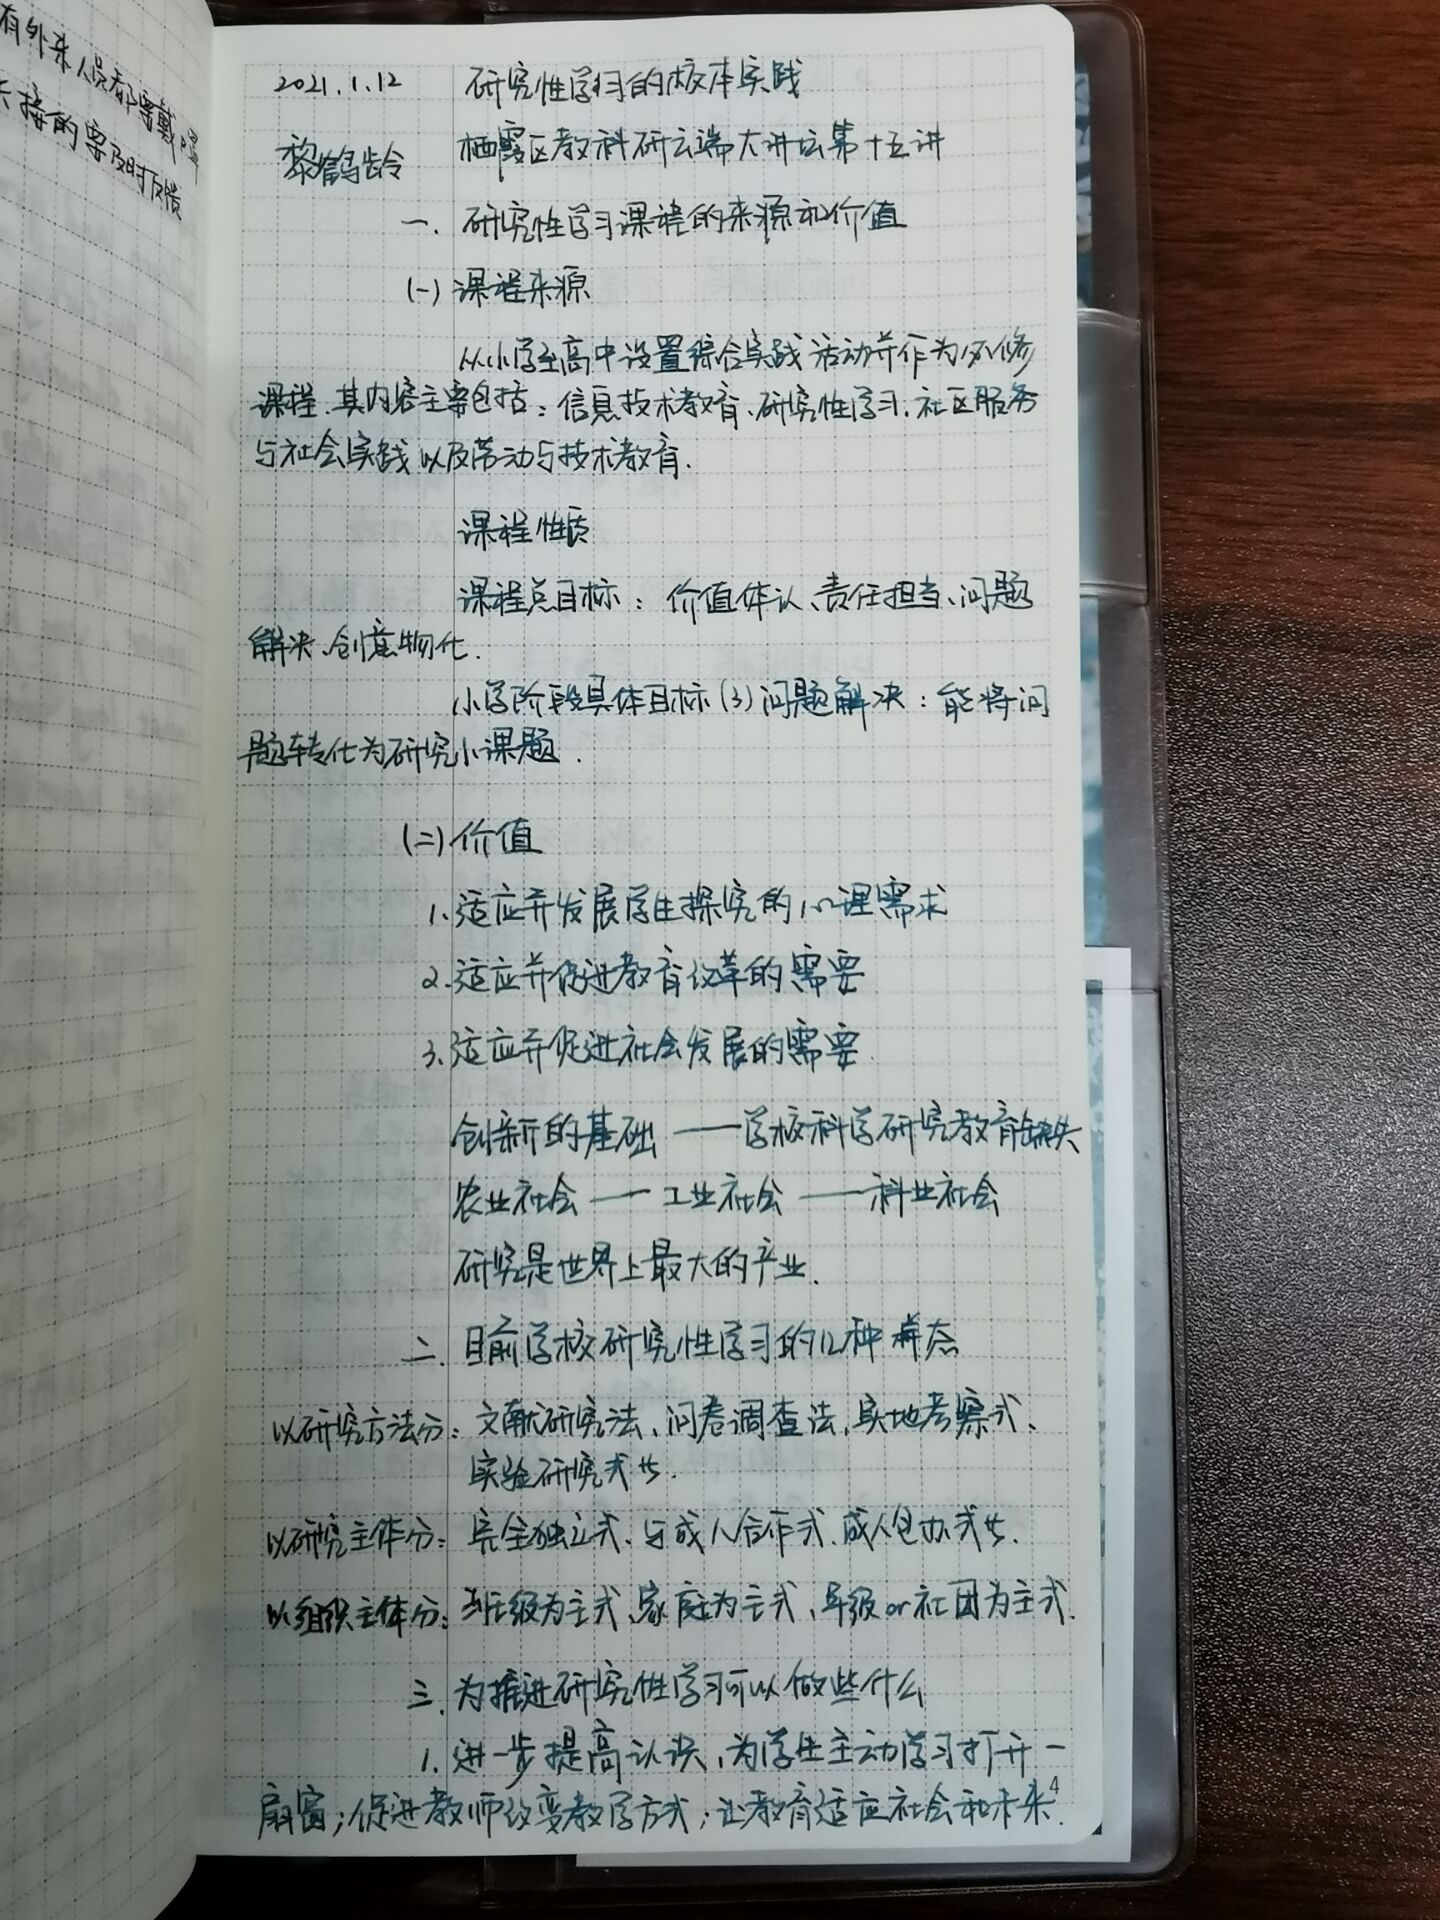 有外来人员都需戴口罩
接的要及时反馈
2021.1.12 研究性学习的校本实践
黎鹤龄 栖霞区教科研云端大讲坛第十五讲
一. 研究性学习课程的来源和价值
(一) 课程来源
从小学至高中设置综合实践活动并作为必修
课程.其内容主要包括：信息技术教育、研究性学习、社区服务
与社会实践以及劳动与技术教育.
课程性质
课程总目标：价值体认、责任担当、问题
解决、创意物化.
小学阶段具体目标(3)问题解决：能将问
题转化为研究小课题.
(二) 价值
1.适应并发展学生探究的心理需求
2.适应并促进教育改革的需要
3.适应并促进社会发展的需要.
创新的基础——学校科学研究教育缺失
农业社会——工业社会——科业社会
研究是世界上最大的产业.
二. 目前学校研究性学习的几种样态
以研究方法分：文献研究法、问卷调查法、实地考察式、
实验研究式等.
以研究主体分：完全独立式、与成人合作式、成人包办式等.
以组织主体分：班级为主式、家庭为主式、年级or社团为主式.
三. 为推进研究性学习可以做些什么
1. 进一步提高认识，为学生主动学习打开一
扇窗；促进教师改变教学方式；让教育适应社会和未来.
4